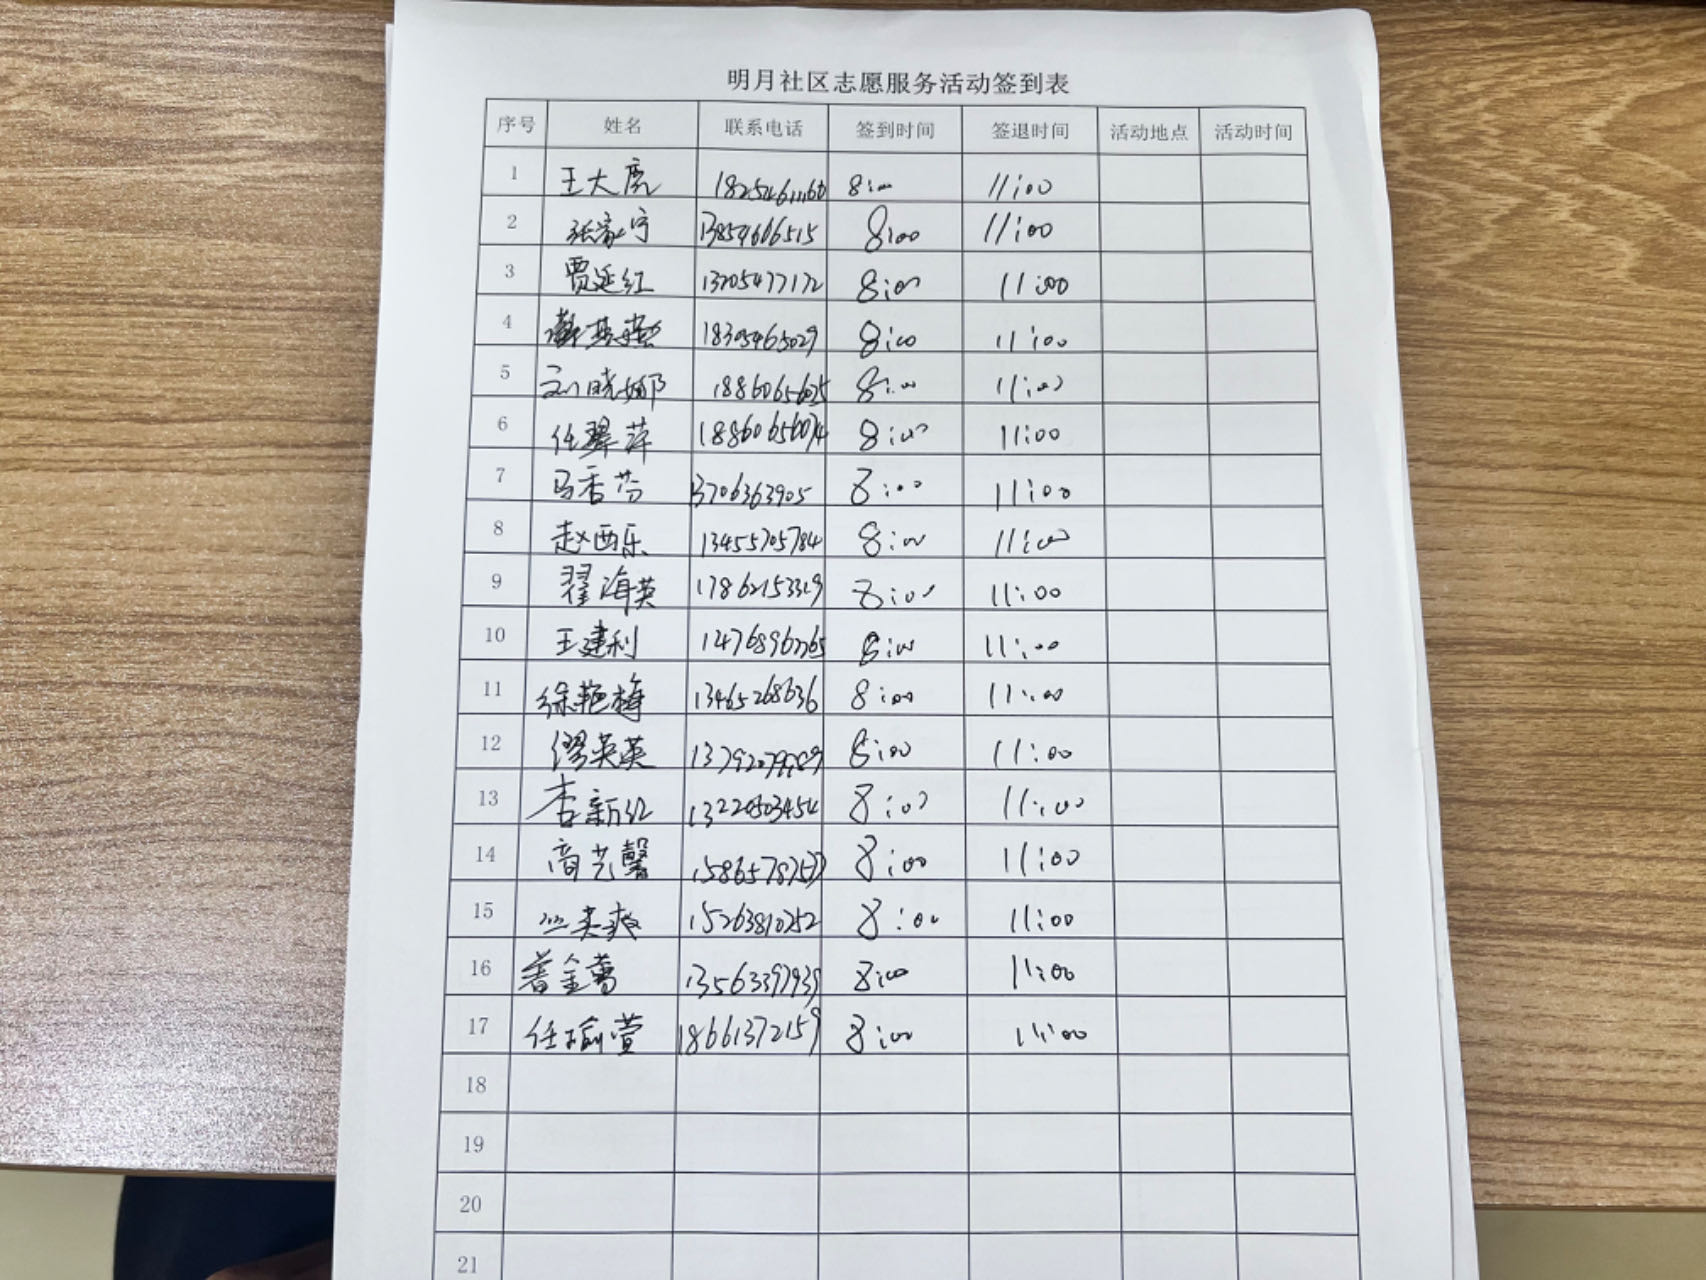 明月社区志愿服务活动签到表
序号 姓名 联系电话 签到时间 签退时间 活动地点 活动时间
1 王大虎 8:00 11:00
2 张家宁 13854606515 8:00 11:00
3 贾延红 13205477172 8:00 11:00
4 18305465029 8:00 11:00
5 刘晓娜 1886065625 8:00 11:00
6 任翠萍 8:00 11:00
7 马香芬 13706363905 8:00 11:00
8 赵西乐 13455705784 8:00 11:00
9 翟海英 17862153319 8:00 11:00
10 王建利 8:00 11:00
11 徐艳梅 13465268636 8:00 11:00
12 缪英英 8:00 11:00
13 李新红 13220503454 8:00 11:00
14 商艺馨 8:00 11:00
15 15263810252 8:00 11:00
16 13563397939 8:00 11:00
17 任瑜萱 18661372159 8:00 11:00
18
19
20
21